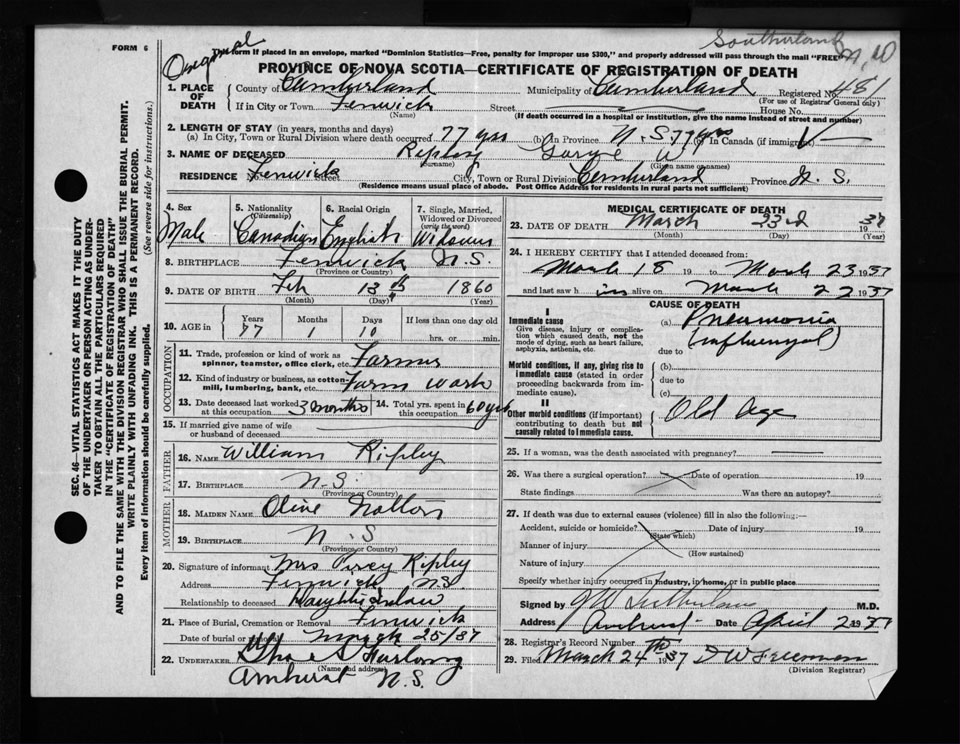 FORM 6
Original
Southerland
This form if placed in an envelope, marked "Dominion Statistics—Free, penalty for improper use $300," and properly addressed will pass through the mail "FREE"
PROVINCE OF NOVA SCOTIA—CERTIFICATE OF REGISTRATION OF DEATH
1. PLACE OF DEATH
County of Cumberland Municipality of Cumberland Registered No. 481
(For use of Registrar General only)
If in City or Town Fenwick Street House No.
(Name) (If death occurred in a hospital or institution, give the name instead of street and number)
2. LENGTH OF STAY (in years, months and days)
(a) In City, Town or Rural Division where death occurred 77 yrs (b) In Province N.S. 77 yrs (c) In Canada (if immigrant)
3. NAME OF DECEASED Ripley George W
(Surname) (Given name or names)
RESIDENCE No. Fenwick Street City, Town or Rural Division Cumberland Province N. S.
(Residence means usual place of abode. Post Office Address for residents in rural parts not sufficient)
4. Sex Male
5. Nationality (Citizenship) Canadian
6. Racial Origin English
7. Single, Married, Widowed or Divorced (write the word) Widower
8. BIRTHPLACE Fenwick N.S.
(Province or Country)
9. DATE OF BIRTH Feb 13th 1860
(Month) (Day) (Year)
10. AGE in Years Months Days If less than one day old
77 1 10 hrs. or min.
OCCUPATION
11. Trade, profession or kind of work as spinner, teamster, office clerk, etc. Farmer
12. Kind of industry or business, as cotton-mill, lumbering, bank, etc. Farm work
13. Date deceased last worked at this occupation 3 months
14. Total yrs. spent in this occupation 60 yrs
15. If married give name of wife or husband of deceased
FATHER
16. NAME William Ripley
17. BIRTHPLACE N.S.
(Province or Country)
MOTHER
18. MAIDEN NAME Olive
19. BIRTHPLACE N.S
(Province or Country)
20. Signature of informant Mrs Percy Ripley
Address Fenwick N.S
Relationship to deceased Daughter inlaw
21. Place of Burial, Cremation or Removal Fenwick
Date of burial or removal March 25/37
22. UNDERTAKER Furlong
(Name and address)
Amherst N.S.
MEDICAL CERTIFICATE OF DEATH
23. DATE OF DEATH March 23rd 1937
(Month) (Day) (Year)
24. I HEREBY CERTIFY that I attended deceased from:
March 18 19 to March 23 1937
and last saw him alive on March 22 1937
CAUSE OF DEATH
I
Immediate cause
Give disease, injury or complication which caused death, not the mode of dying, such as heart failure, asphyxia, asthenia, etc.
(a) Pneumonia
(influenzal)
due to
Morbid conditions, if any, giving rise to immediate cause (stated in order proceeding backwards from immediate cause).
(b)
due to
(c)
II
Other morbid conditions (if important) contributing to death but not causally related to immediate cause.
Old Age
25. If a woman, was the death associated with pregnancy?
26. Was there a surgical operation? Date of operation 19
State findings Was there an autopsy?
27. If death was due to external causes (violence) fill in also the following:—
Accident, suicide or homicide? Date of injury 19
(State which)
Manner of injury
(How sustained)
Nature of injury
Specify whether injury occurred in industry, in home, or in public place
Signed by M.D.
Address Amherst Date April 2 1937
28. Registrar's Record Number
29. Filed March 24th 1937
(Division Registrar)
SEC. 46—VITAL STATISTICS ACT MAKES IT THE DUTY
OF THE UNDERTAKER OR PERSON ACTING AS UNDER-
TAKER TO OBTAIN ALL THE PARTICULARS REQUIRED
IN THE "CERTIFICATE OF REGISTRATION OF DEATH"
AND TO FILE THE SAME WITH THE DIVISION REGISTRAR WHO SHALL ISSUE THE BURIAL PERMIT.
WRITE PLAINLY WITH UNFADING INK. THIS IS A PERMANENT RECORD.
Every item of information should be carefully supplied. (See reverse side for instructions.)